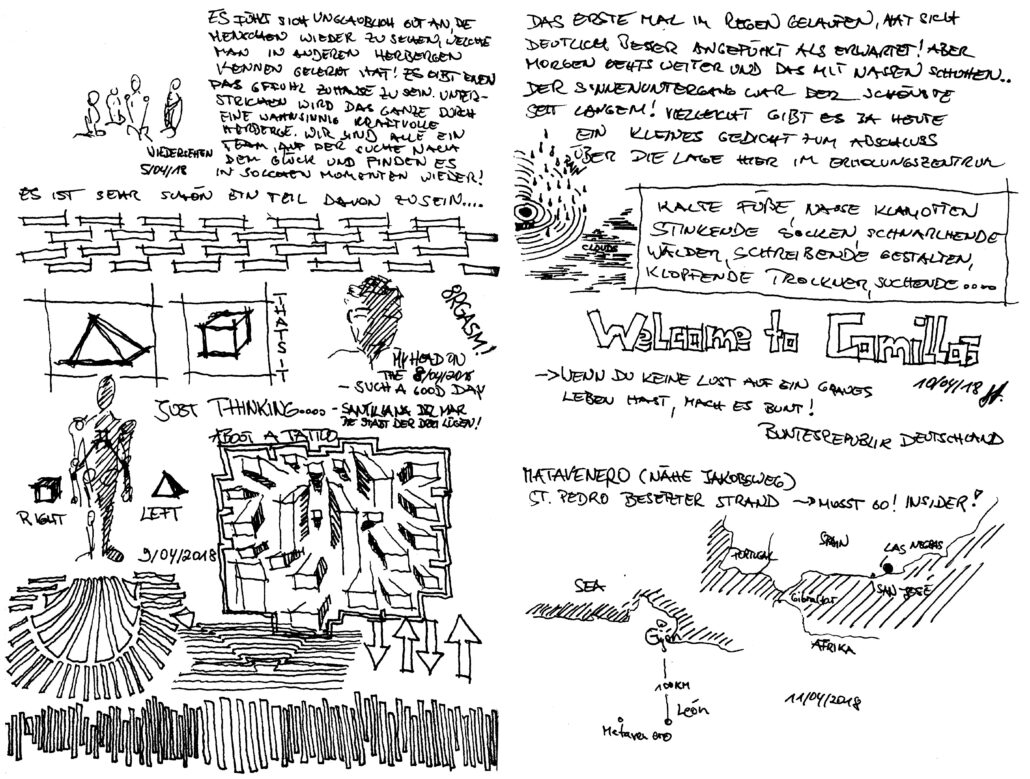 ES FÜHLT SICH UNGLAUBLICH GUT AN, DIE
MENSCHEN WIEDER ZU SEHEN, WELCHE
MAN IN ANDEREN HERBERGEN
KENNEN GELERNT HAT! ES GIBT EINEN
DAS GEFÜHL ZUHAUSE ZU SEIN. UNTER-
STRICHEN WIRD DAS GANZE DURCH
EINE WAHNSINNIG KRAFTVOLLE
HERBERGE. WIR SIND ALLE EIN
TEAM, AUF DER SUCHE NACH
DEM GLÜCK UND FINDEN ES
IN SOLCHEN MOMENTEN WIEDER!
WIEDERSEHEN
5/04/18
ES IST SEHR SCHÖN EIN TEIL DAVON ZU SEIN....
THATS IT
ORGASM!
MY HEAD ON
THE 8/04/2018
- SUCH A GOOD DAY
- SANTILLANA DEL MAR
DIE STADT DER DREI LÜGEN!
JUST THINKING....
ABOUT A TATTOO
RIGHT
LEFT
9/04/2018
DAS ERSTE MAL IM REGEN GELAUFEN, HAT SICH
DEUTLICH BESSER ANGEFÜHLT ALS ERWARTET! ABER
MORGEN GEHTS WEITER UND DAS MIT NASSEN SCHUHEN..
DER SONNENUNTERGANG WAR DER SCHÖNSTE
SEIT LANGEM! VIELLEICHT GIBT ES JA HEUTE
EIN KLEINES GEDICHT ZUM ABSCHLUSS
ÜBER DIE LAGE HIER IM ERHOLUNGSZENTRUM
CLOUDS
KALTE FÜßE, NASSE KLAMOTTEN
STINKENDE SOCKEN, SCHNARCHENDE
WÄLDER, SCHREIBENDE GESTALTEN,
KLOPFENDE TROCKNER, SUCHENDE....
Welcome to Camillas
10/04/18
-> WENN DU KEINE LUST AUF EIN GRAUES
LEBEN HAST, MACH ES BUNT!
BUNTESREPUBLIK DEUTSCHLAND
MATAVENERO (NÄHE JAKOBSWEG)
ST. PEDRO BESETZTER STRAND -> MUSST GO! INSIDER!
PORTUGAL
SPAIN
LAS NEGRAS
SAN JOSÉ
Gibraltar
AFRIKA
SEA
Gijon
100KM
León
Matavenero
11/04/2018